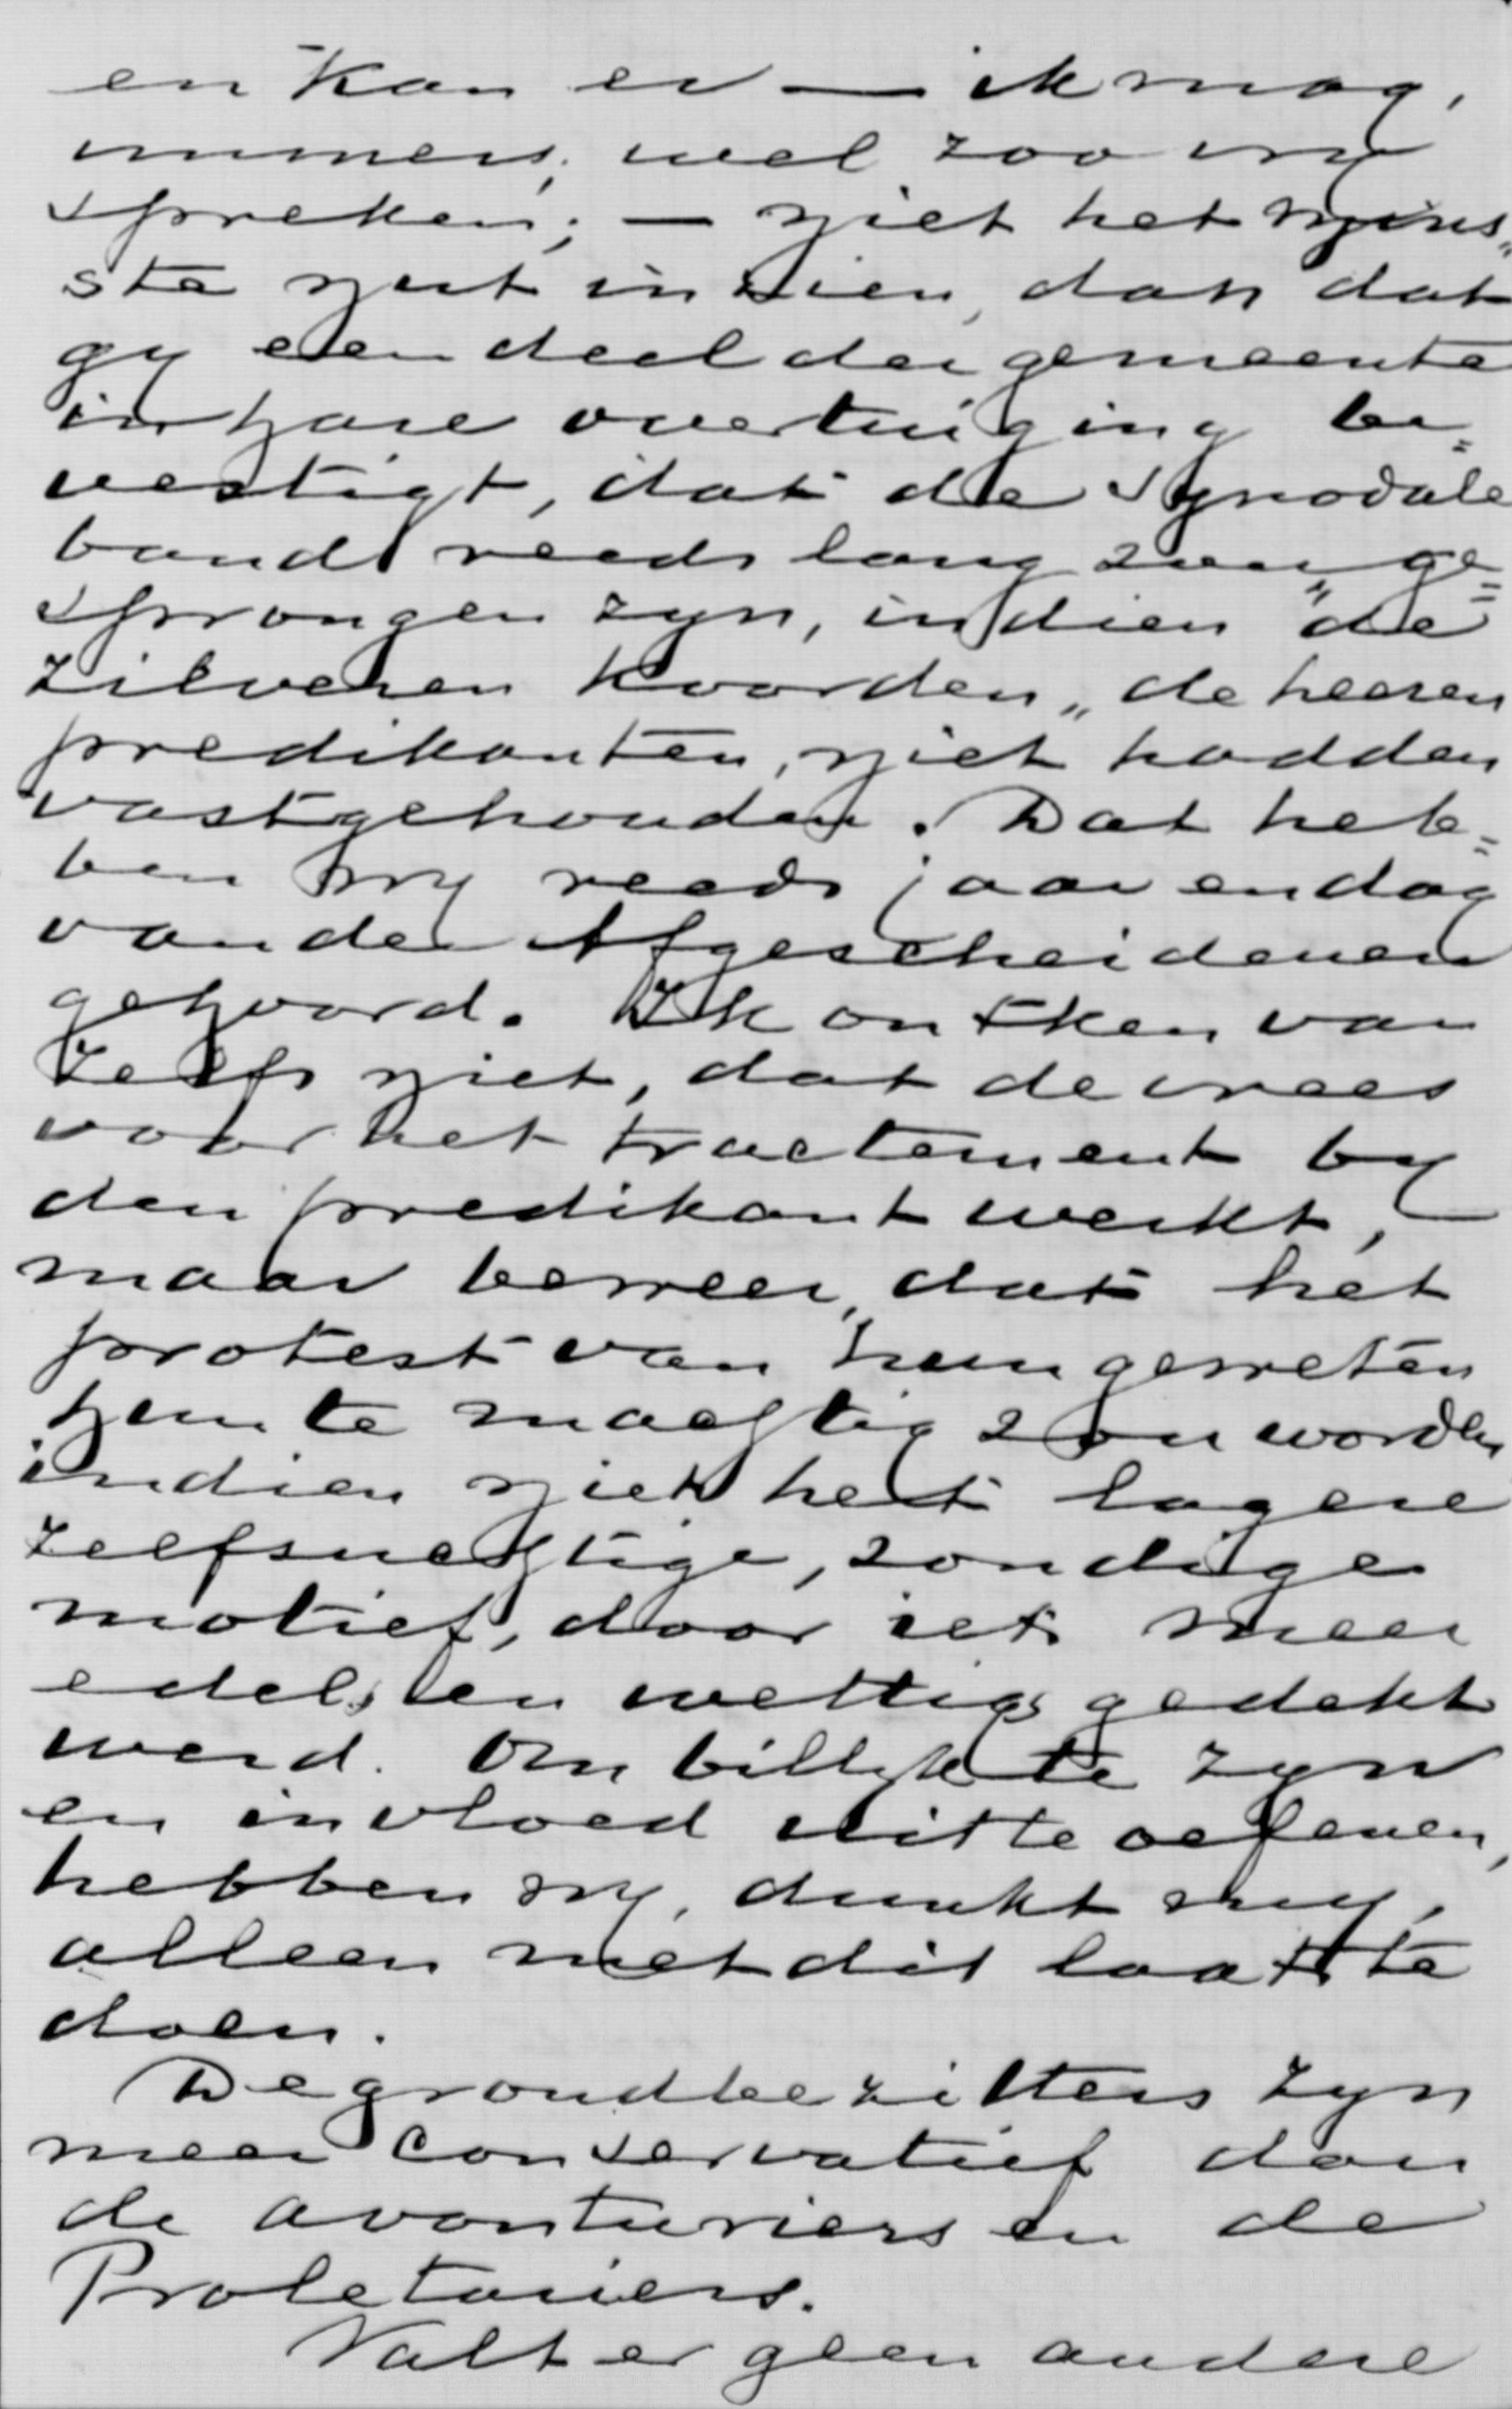 en kan er — ik mag,
immers, wel zoo vry
spreken; — niet het mins„
ste nut in zien, dan dat
gy een deel der gemeente
in hare overtuiging be=
vestigt, dat de Synodale
band reeds lang zou ge=
sprongen zyn, indien "de
zilveren koorden„ de heeren
predikanten, niet hadden
vastgehouden. Dat heb=
ben wy reeds jaar en dag
van de Afgescheidenen
gehoord. Ik ontken van
zelfs niet, dat de vrees
voor het tractement by
den predikant werkt, —
maar beweer, dat het
protest van hun geweten
hun te magtig zou worden
indien niet het lagere
zelfsugtige, zondige
motief, door iets meer
edels en wettigs gedekt
werd. Om billyk te zyn
en invloed uit te oefenen,
hebben wy, dunkt my,
alleen met dit laatste te
doen.
De grondbezitters zyn
meer conservatief dan
de avonturiers en de
Proletariers.
Valt er geen andere